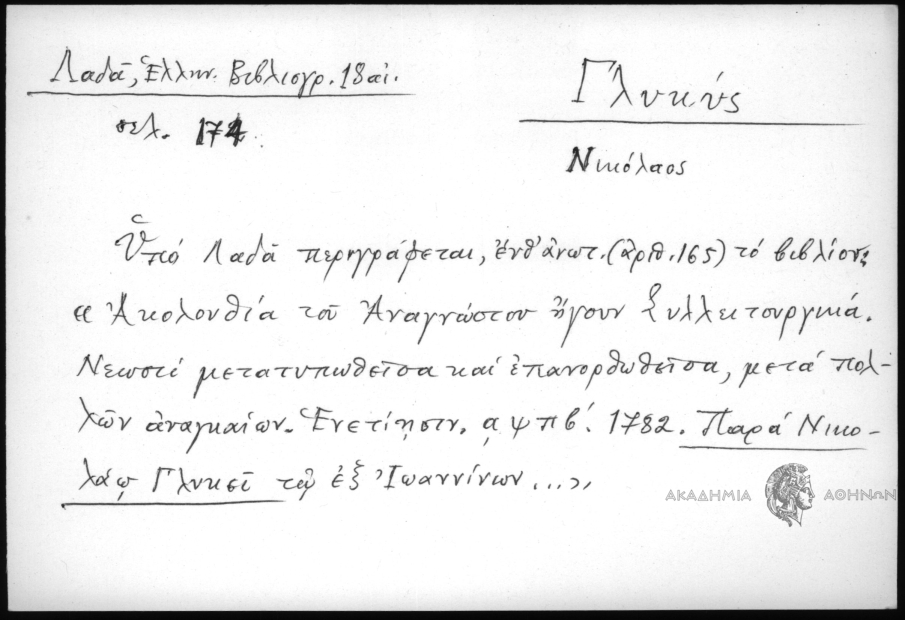 Λαδᾶ, Ἑλλην. Βιβλιογρ. 18 αἰ.
σελ. 174.
Γλυκύς
Νικόλαος
Ὑπό Λαδᾶ περιγράφεται, ἐνθ' ἀνωτ. (ἀριθ. 165) τό βιβλίον:
« Ἀκολουθία τοῦ Ἀναγνώστου ἤγουν Συλλειτουργικά.
Νεωστί μετατυπωθεῖσα καί ἐπανορθωθεῖσα, μετά πολ-
λῶν ἀναγκαίων. Ἐνετίησιν. αψπβ΄. 1782. Παρά Νικο-
λάῳ Γλυκεῖ τῷ ἐξ Ἰωαννίνων ...»
ΑΚΑΔΗΜΙΑ ΑΘΗΝΩΝ